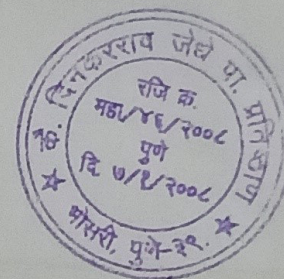 कै. दिनकरराव जेधे पा. प्रतिष्ठाण
रजि क्र.
महा/४६/२००८
पुणे
दि ७/१/२००८
★ भोसरी, पुणे-३९. ★